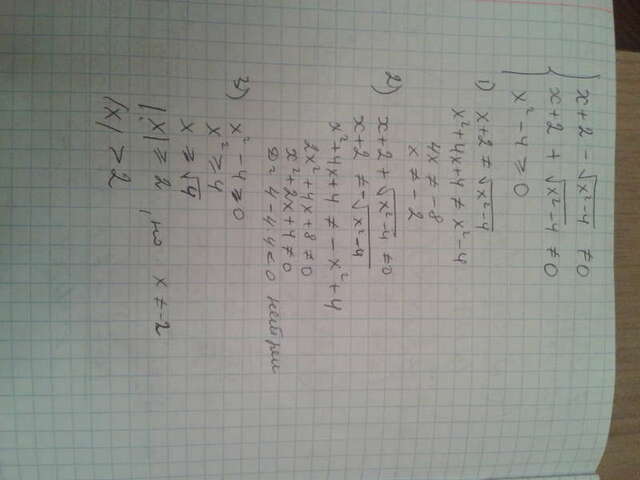 { x+2 - √x²-4 ≠ 0
x+2 + √x²-4 ≠ 0
x² - 4 ⩾ 0
1) x+2 ≠ √x²-4
x²+4x+4 ≠ x²-4
4x ≠ -8
x ≠ -2
2) x+2 + √x²-4 ≠ 0
x+2 ≠ -√x²-4
x²+4x+4 ≠ -x²+4
2x²+4x+8 ≠ 0
x²+2x+4 ≠ 0
D = 4-4·4 < 0 нет реш
3) x² - 4 ⩾ 0
x² ⩾ 4
x ⩾ √4
|x| ⩾ 2, но x ≠ -2
|x| > 2